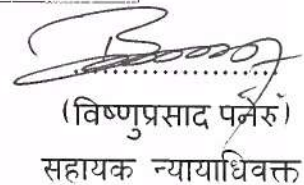 (विष्णुप्रसाद पनेरु)
सहायक न्यायाधिवक्ता